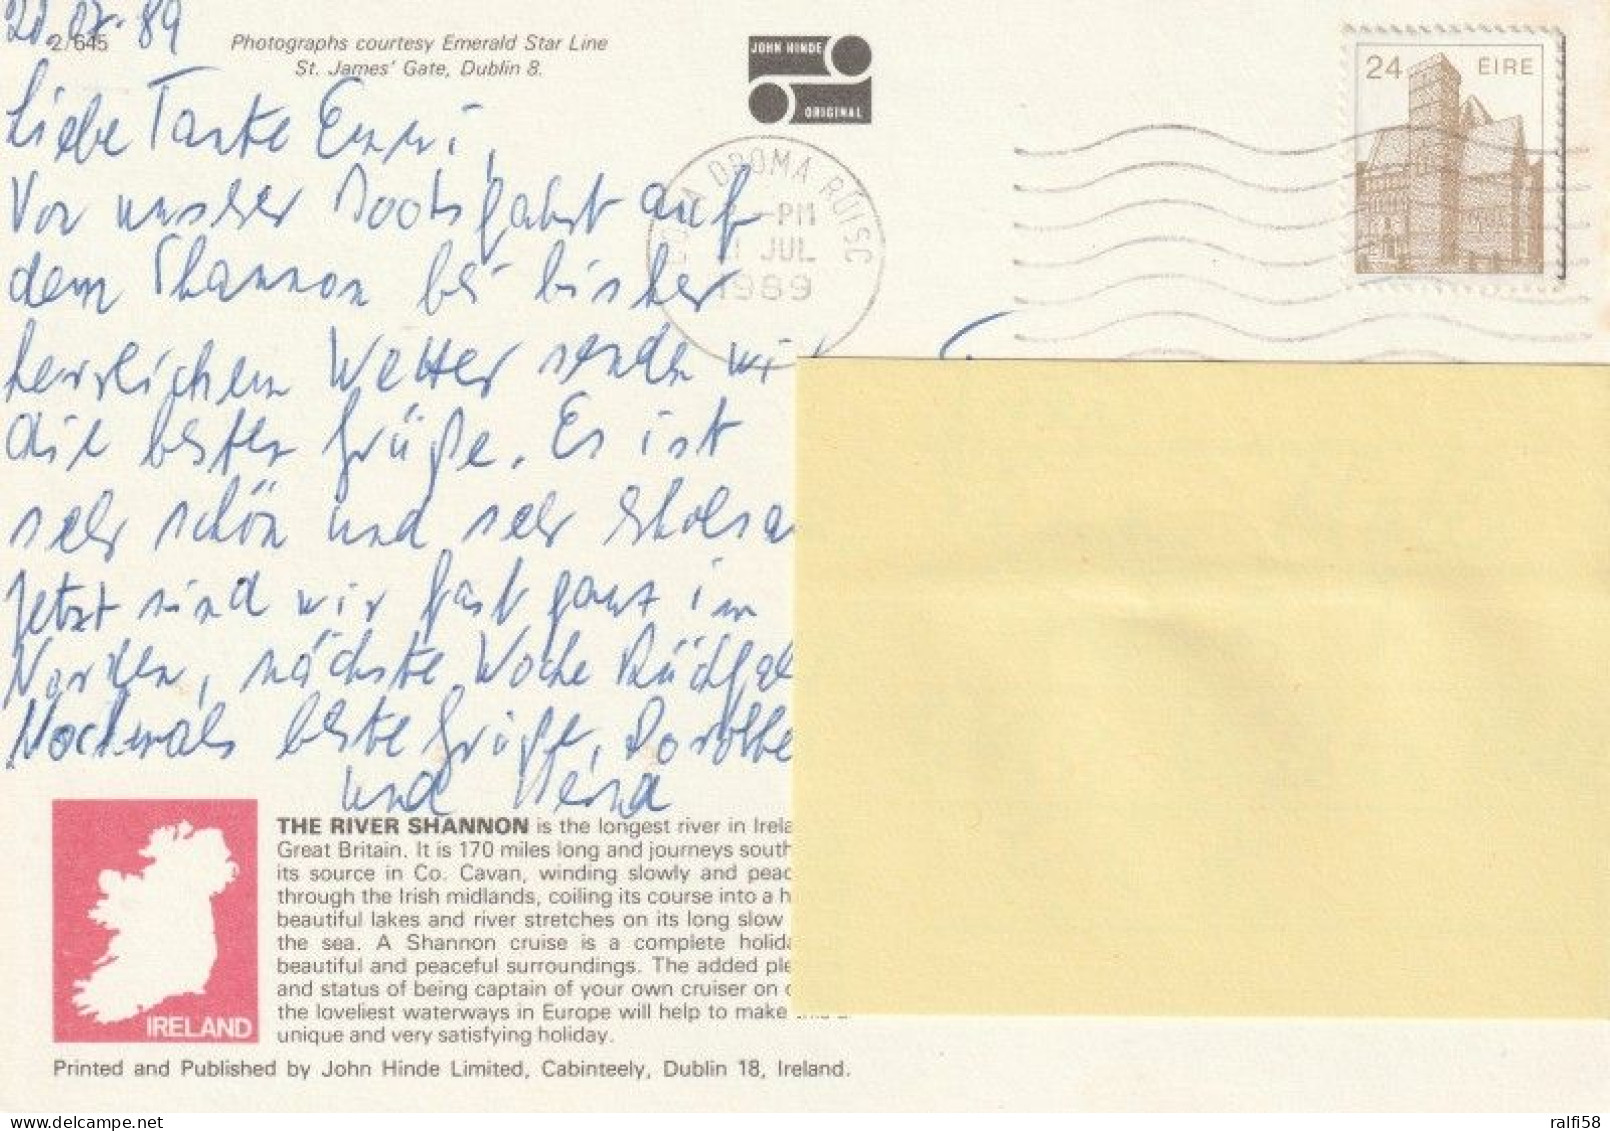 20.07.89
2/645
Photographs courtesy Emerald Star Line
St. James' Gate, Dublin 8.
JOHN HINDE
ORIGINAL
24 EIRE
DROMA RÚISC
-PM
21 JUL
1989
Liebe Tante Emmi,
Vor unserer Bootsfahrt auf
dem Shannon bei bisher
herrlichem Wetter senden wir
die besten Grüße. Es ist
sehr schön und sehr erholsa
Jetzt sind wir fast ganz im
Norden, nächste Woche Rückfa
Nochmals beste Grüße, Dorothe
und
THE RIVER SHANNON is the longest river in Irela
Great Britain. It is 170 miles long and journeys south
its source in Co. Cavan, winding slowly and peac
through the Irish midlands, coiling its course into a h
beautiful lakes and river stretches on its long slow
the sea. A Shannon cruise is a complete holida
beautiful and peaceful surroundings. The added ple
and status of being captain of your own cruiser on o
the loveliest waterways in Europe will help to make this a
unique and very satisfying holiday.
IRELAND
Printed and Published by John Hinde Limited, Cabinteely, Dublin 18, Ireland.
ralfi58